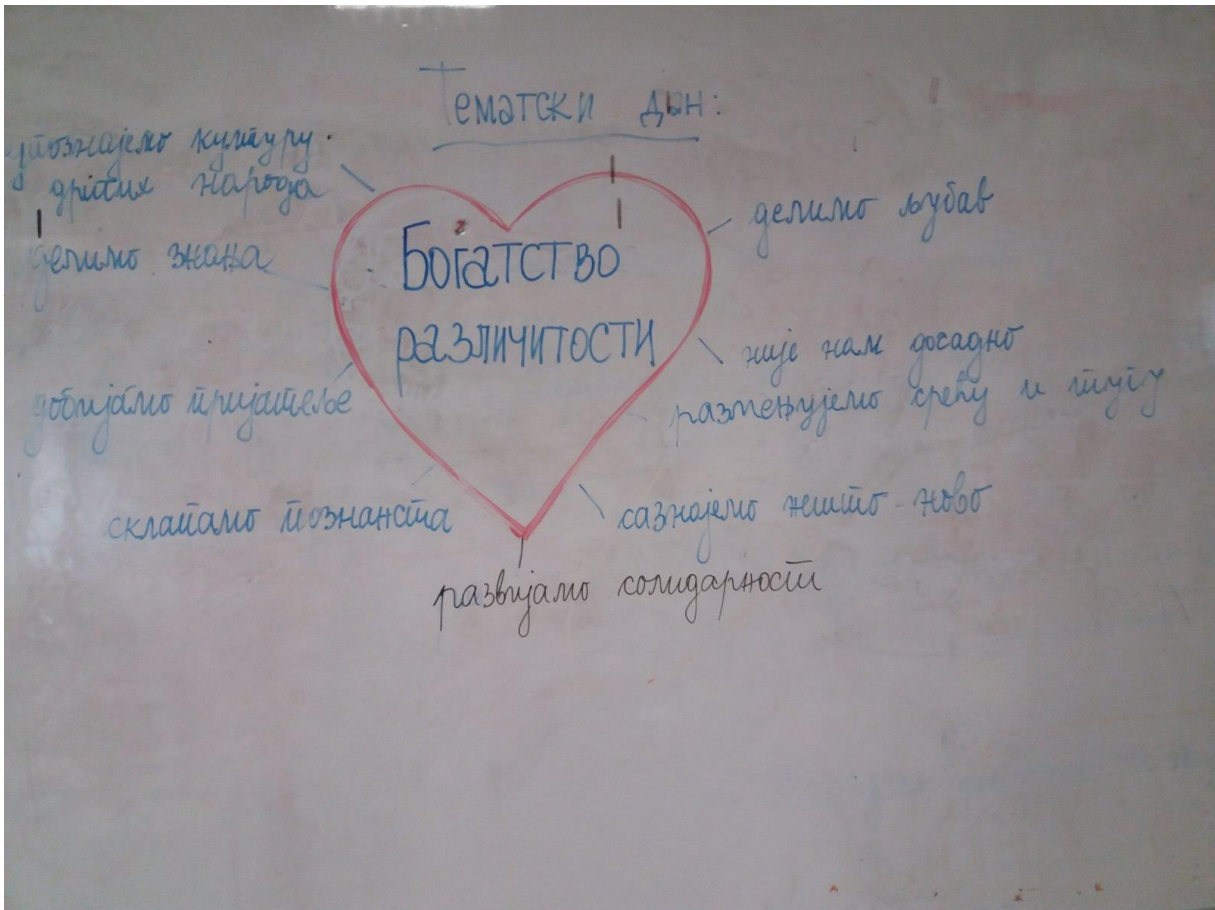 Тематски дан:
упознајемо културу
других народа
делимо знања
добијамо пријатеље
склапамо познанста
Богатство
различитости
делимо љубав
није нам досадно
размењујемо срећу и тугу
сазнајемо нешто ново
развијамо солидарност